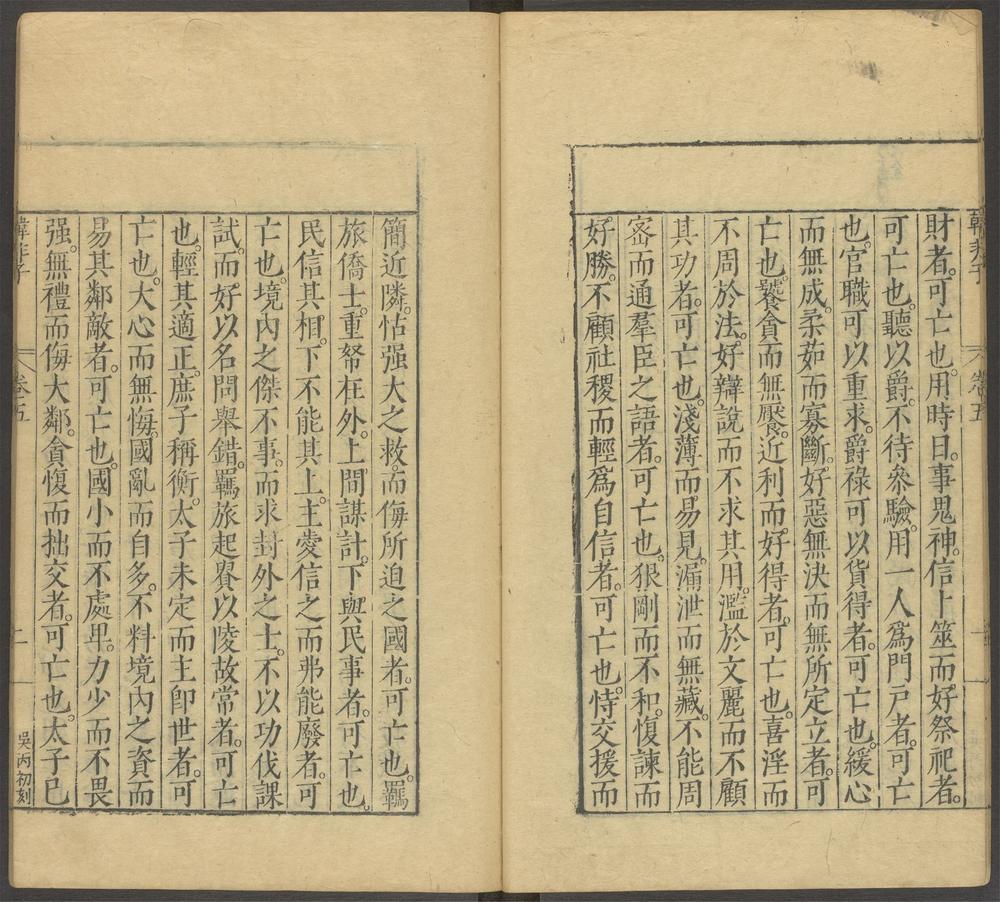 韓非子 卷五 一
財者。可亡也。用時日。事鬼神。信卜筮而。好祭祀者。
可亡也。聽以爵。不待參驗。用一人爲門戸者。可亡
也。官職可以重求。爵祿可以貨得者。可亡也。緩心
而無成。柔茹而寡斷。好惡無決而無所定立者。可
亡也。饕貪而無饜。近利而。好得者。可亡也。喜淫而
不周於法。好辯說而不求其用。濫於文麗而不顧
其功者。可亡也。淺薄而。易見。漏泄而無藏。不能周
宻而通羣臣之語者。可亡也。狠剛而不和。愎諫而
好。勝。不顧社稷而輕爲自信者。可亡也。恃交援而
簡近隣。怙强大之救。而侮所迫之國者。可亡也。羈
旅僑士。重帑在外。上間謀計。下與民事者。可亡也。
民信其相。下不能其上。主愛信之而弗能廢者。可
亡也。境內之傑不事。而求封外之士。不以功伐課
試。而。好以名問舉錯。羈旅起貴以陵故常者。可亡
也。輕其適正。庶子稱衡。太子未定而主卽世者。可
亡也。大心而無悔。國亂而自多。不料境內之資而
易其鄰敵者。可亡也。國小而不處卑。力少而不畏
强。無禮而侮大鄰。貪愎而拙交者。可亡也。太子已
韓非子 卷五 二 吳丙初刻